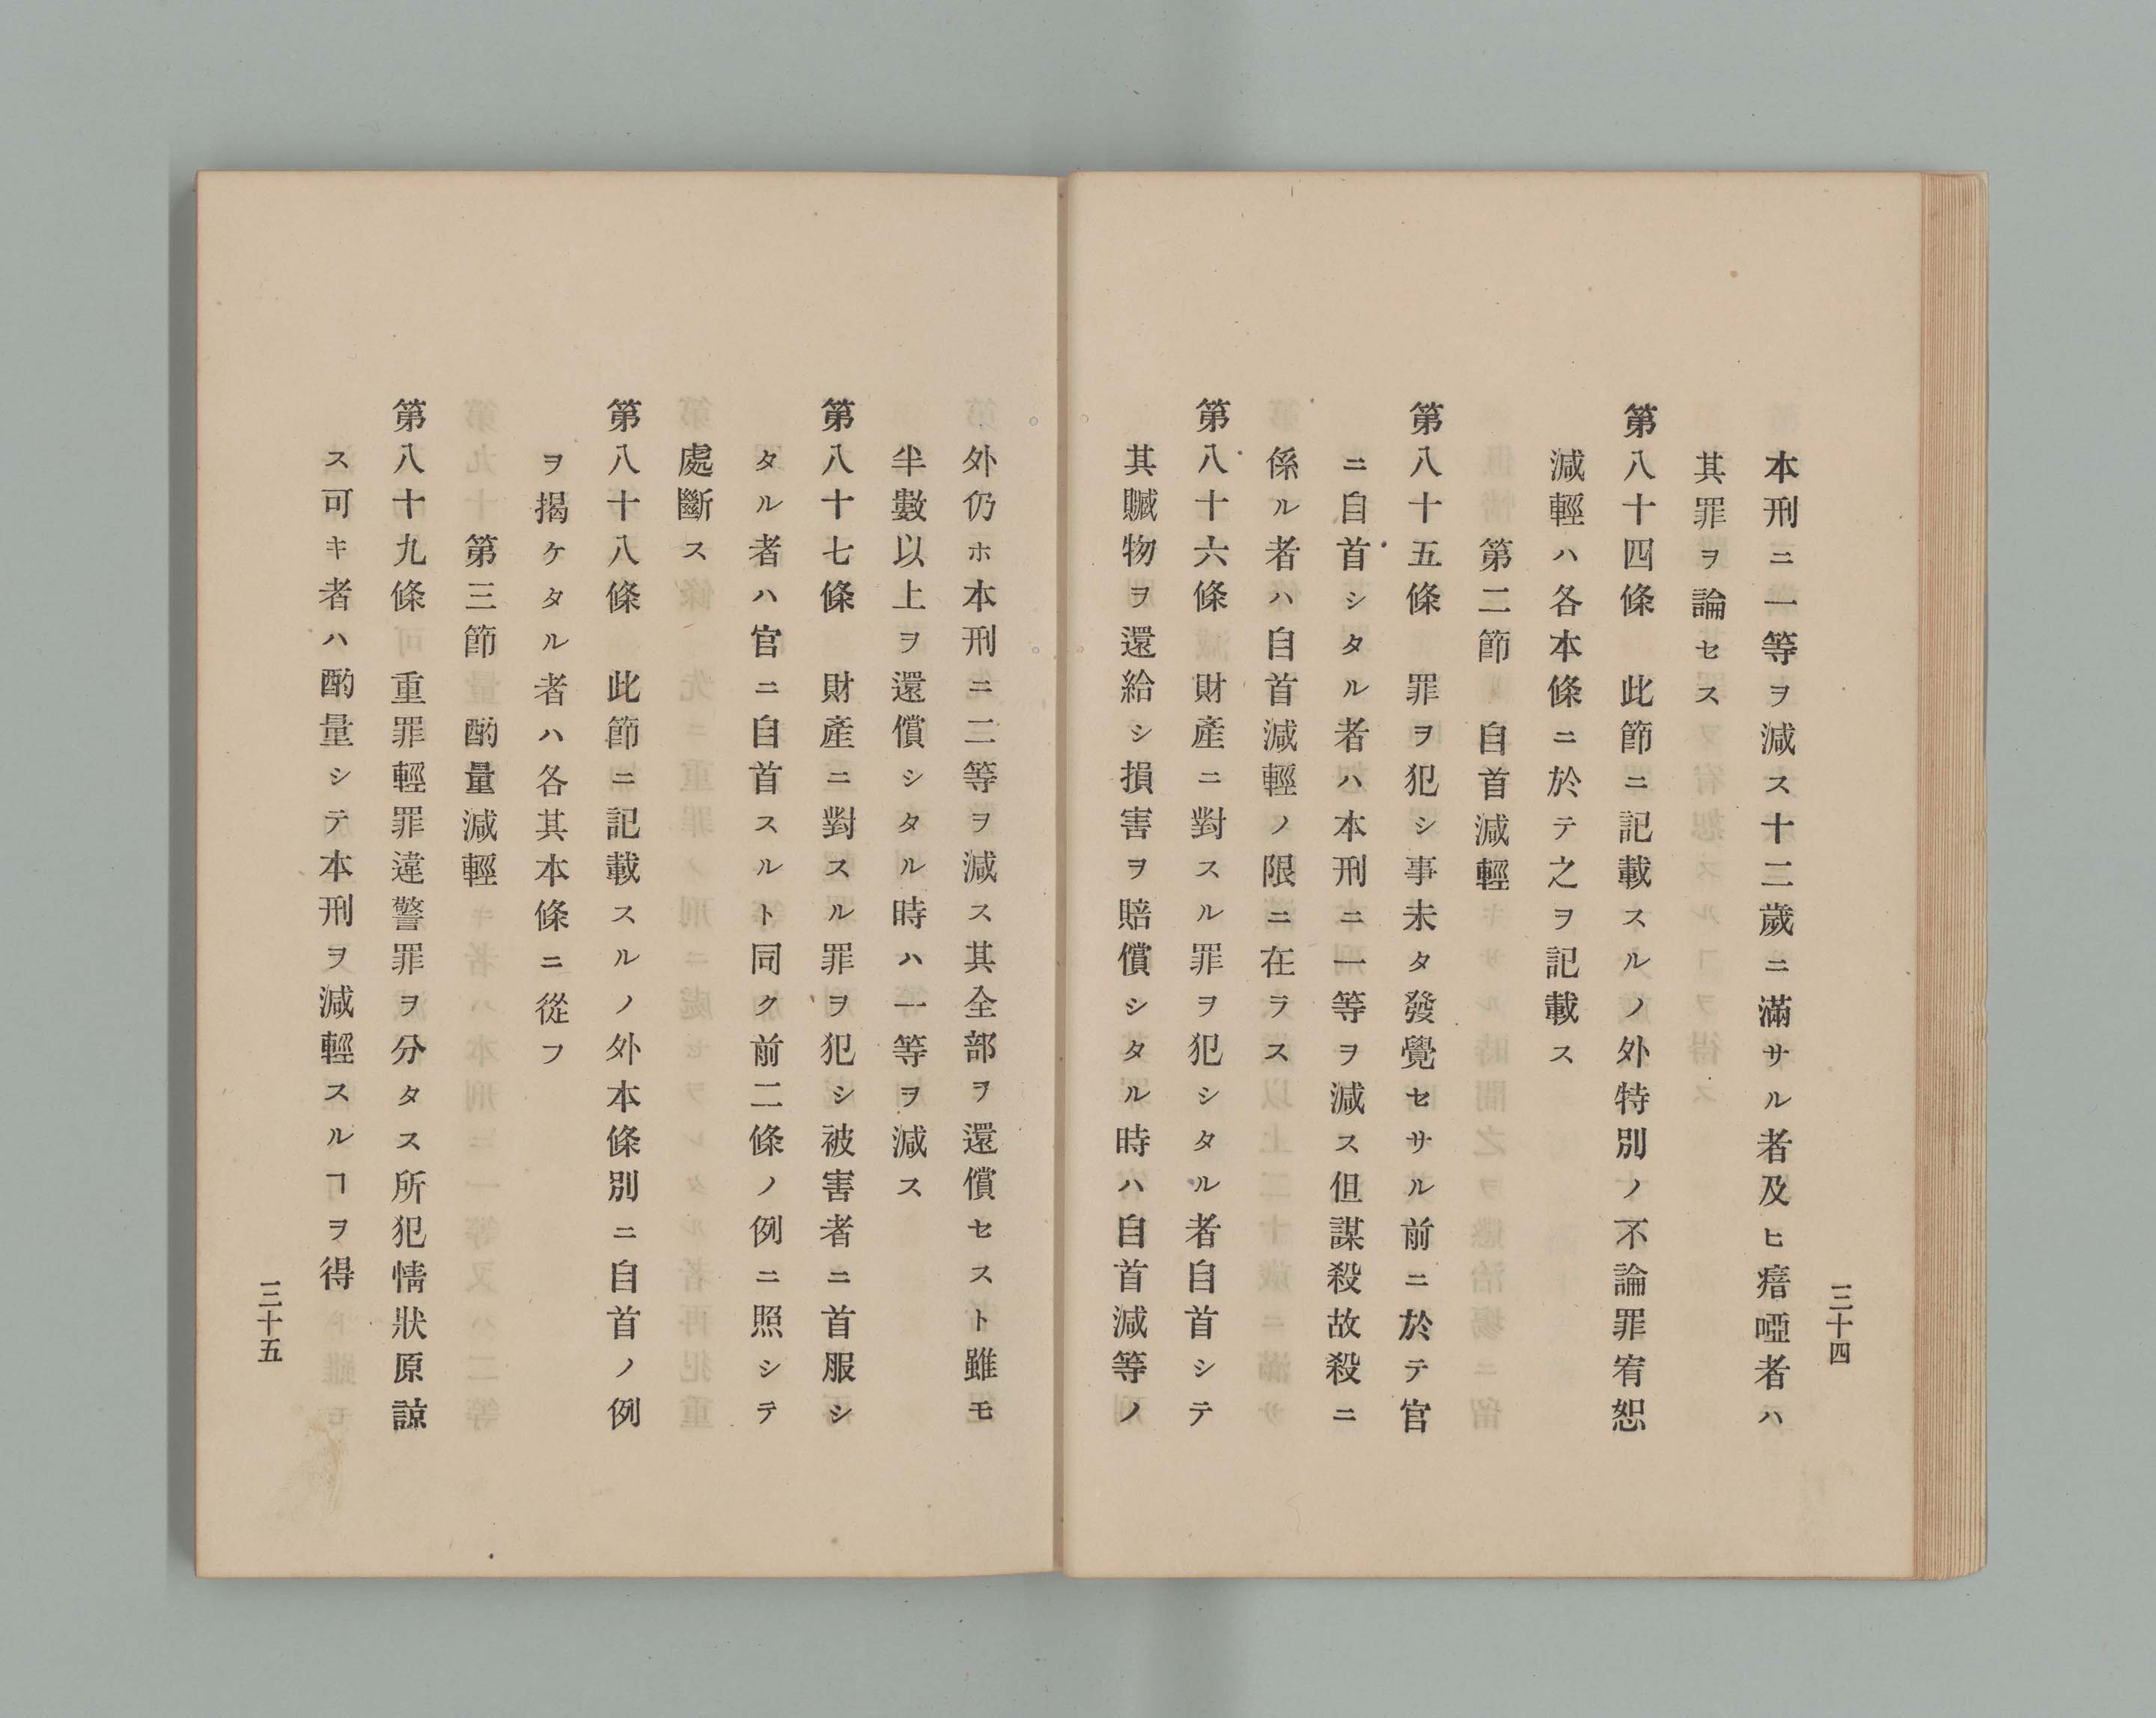 三十四
本刑ニ一等ヲ減ス十二歲ニ滿サル者及ヒ瘖啞者ハ
其罪ヲ論セス
第八十四條　此節ニ記載スルノ外特別ノ不論罪宥恕
減輕ハ各本條ニ於テ之ヲ記載ス
第二節　自首減輕
第八十五條　罪ヲ犯シ事未タ發覺セサル前ニ於テ官
ニ自首シタル者ハ本刑ニ一等ヲ減ス但謀殺故殺ニ
係ル者ハ自首減輕ノ限ニ在ラス
第八十六條　財產ニ對スル罪ヲ犯シタル者自首シテ
其贓物ヲ還給シ損害ヲ賠償シタル時ハ自首減等ノ
外仍ホ本刑ニ二等ヲ減ス其全部ヲ還償セスト雖モ
半數以上ヲ還償シタル時ハ一等ヲ減ス
第八十七條　財產ニ對スル罪ヲ犯シ被害者ニ首服シ
タル者ハ官ニ自首スルト同ク前二條ノ例ニ照シテ
處斷ス
第八十八條　此節ニ記載スルノ外本條別ニ自首ノ例
ヲ揭ケタル者ハ各其本條ニ從フ
第三節　酌量減輕
第八十九條　重罪輕罪違警罪ヲ分タス所犯情狀原諒
ス可キ者ハ酌量シテ本刑ヲ減輕スルヿヲ得
三十五